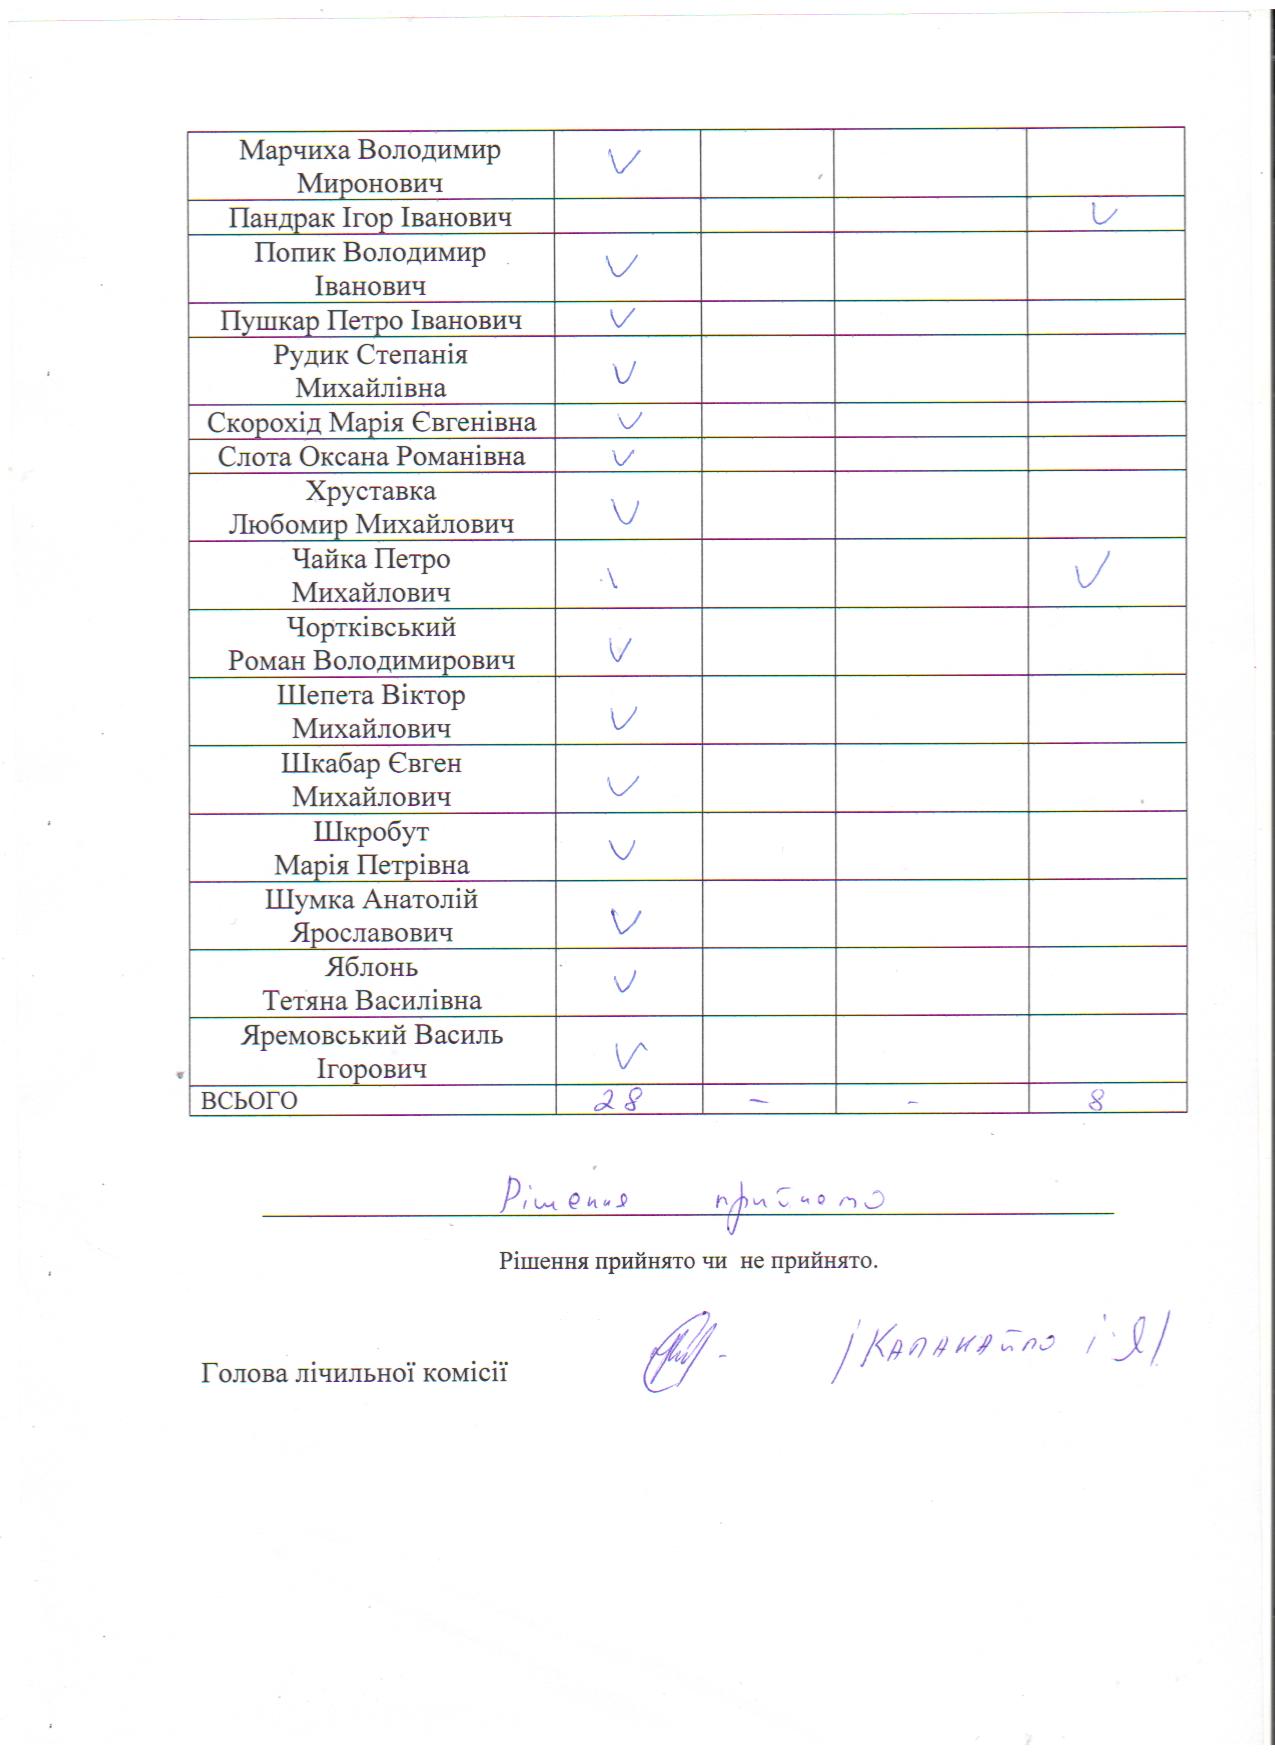 Марчиха Володимир
Миронович
Пандрак Ігор Іванович
Попик Володимир
Іванович
Пушкар Петро Іванович
Рудик Степанія
Михайлівна
Скорохід Марія Євгенівна
Слота Оксана Романівна
Хруставка
Любомир Михайлович
Чайка Петро
Михайлович
Чортківський
Роман Володимирович
Шепета Віктор
Михайлович
Шкабар Євген
Михайлович
Шкробут
Марія Петрівна
Шумка Анатолій
Ярославович
Яблонь
Тетяна Василівна
Яремовський Василь
Ігорович
ВСЬОГО 28 - - 8
Рішення прийнято
Рішення прийнято чи не прийнято.
Голова лічильної комісії